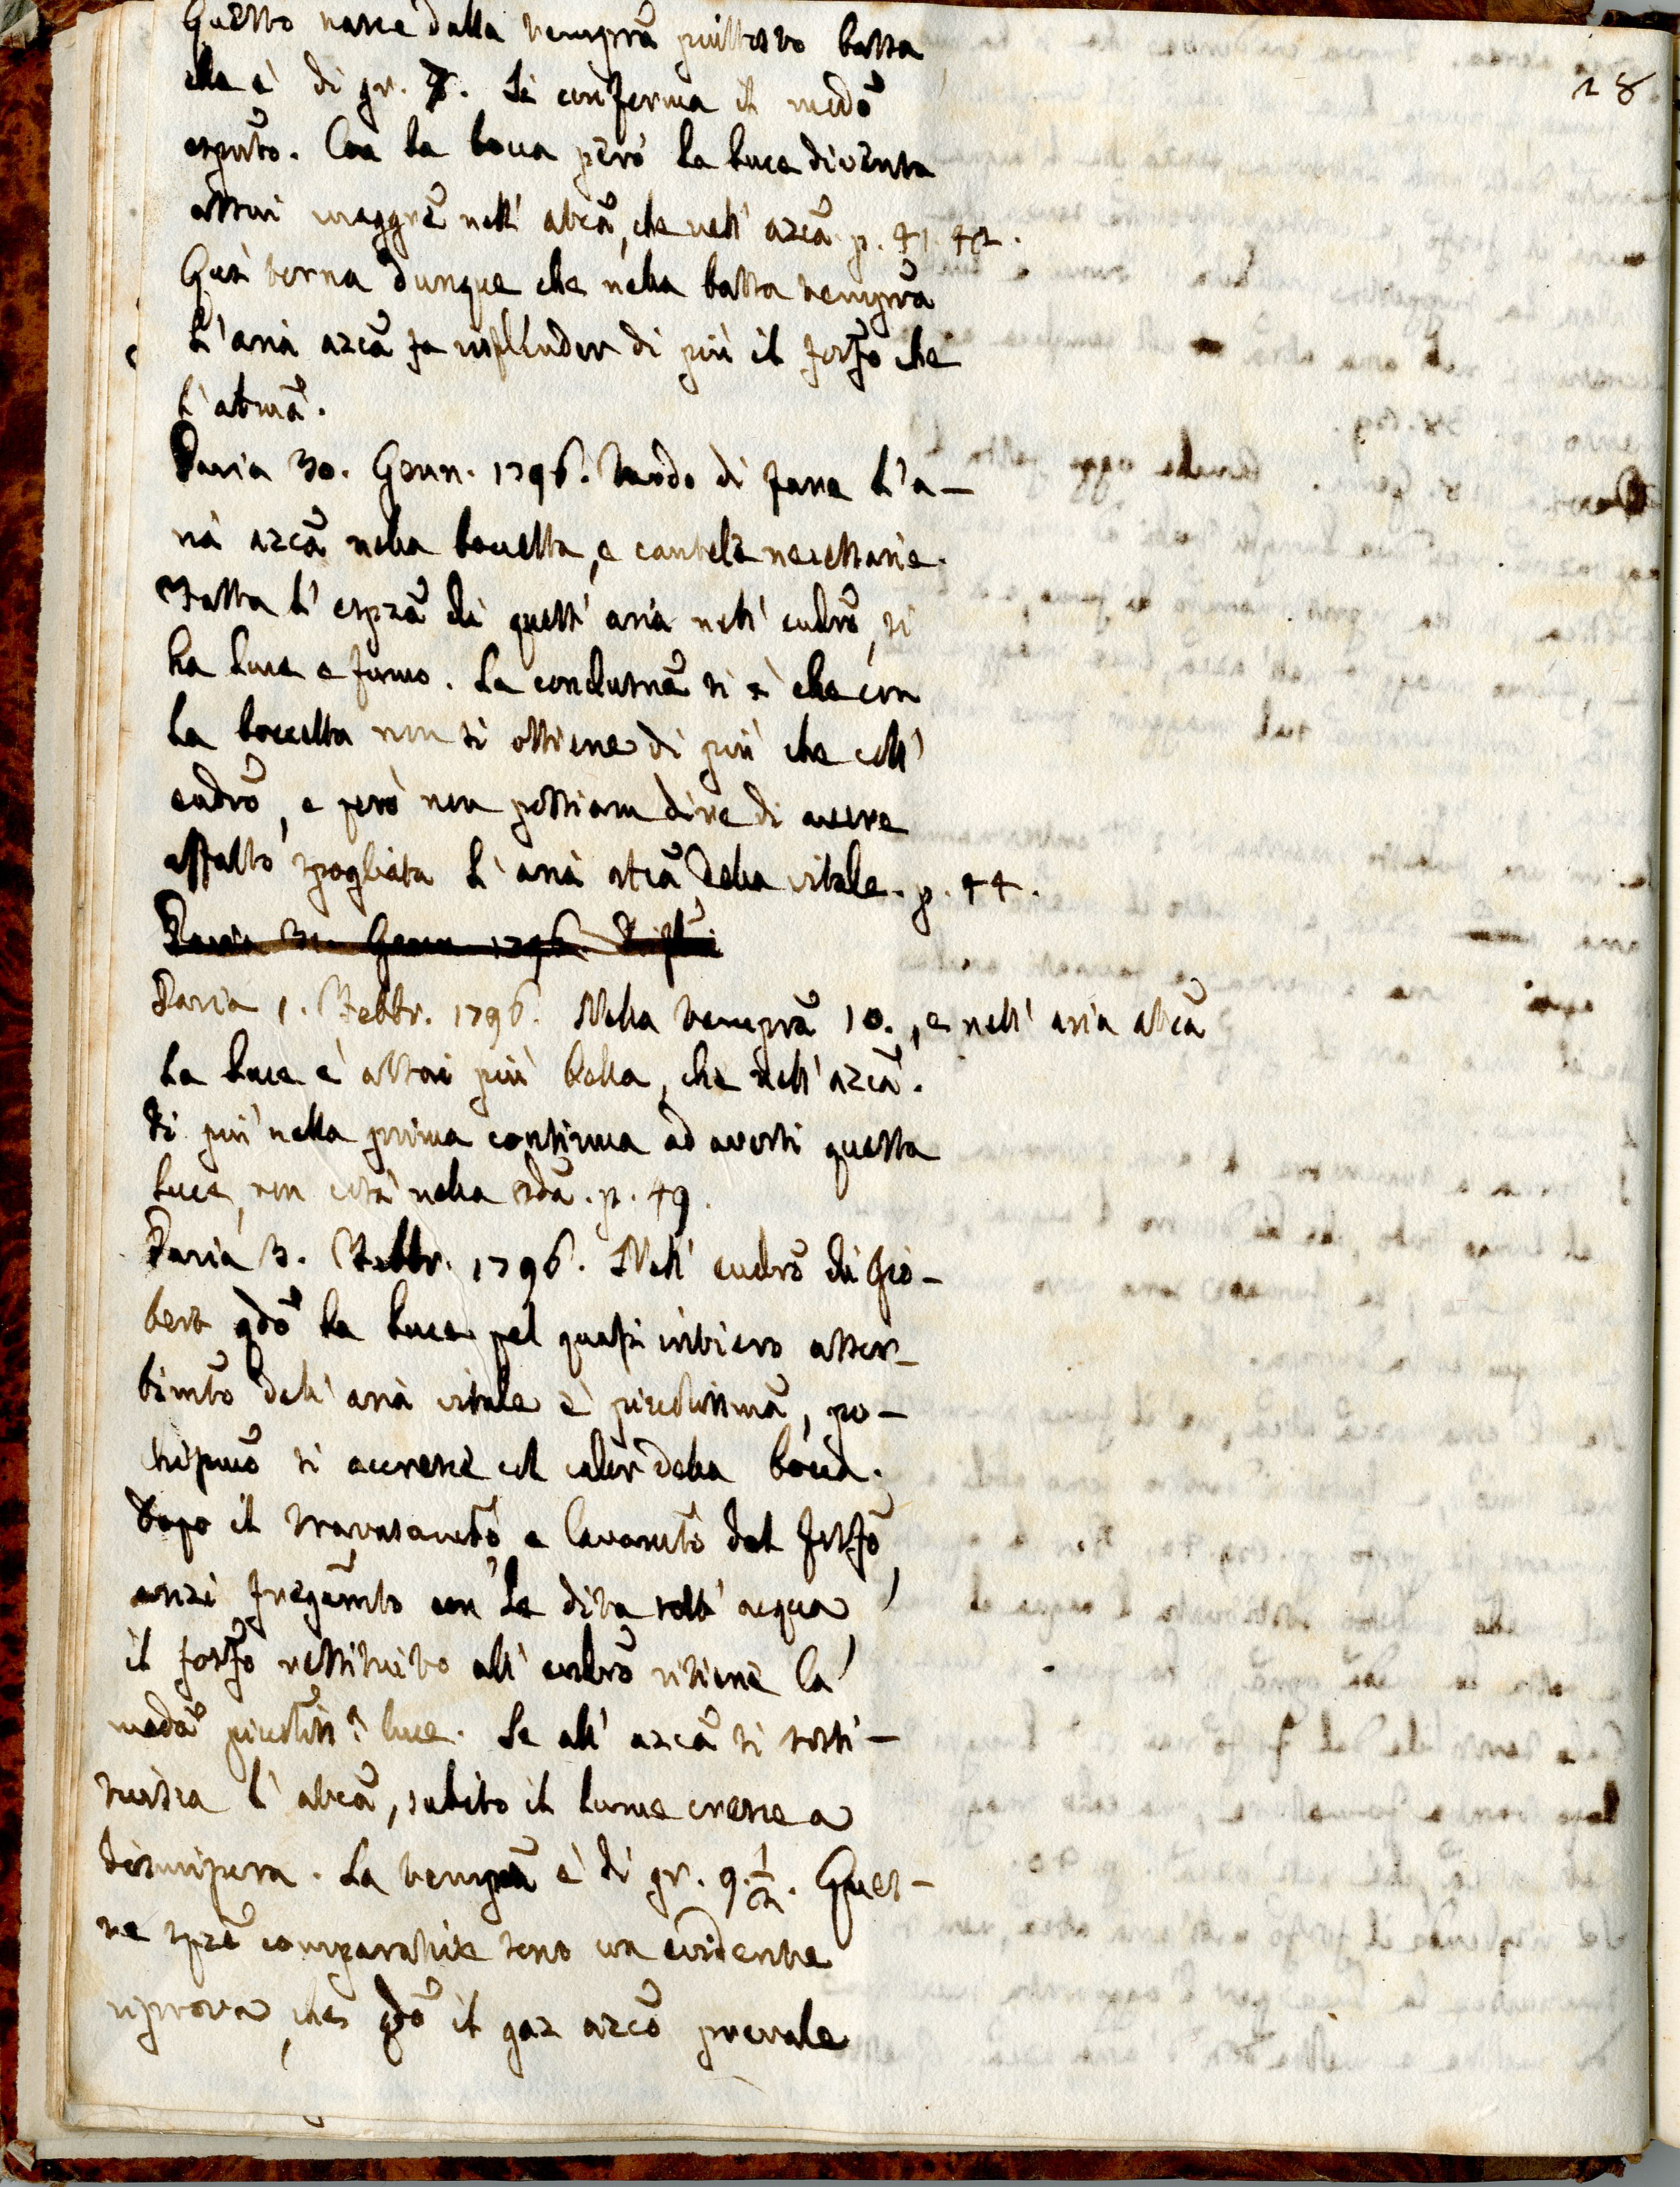 18
Questo nasce dalla tempra piuttosto bassa
che è di gr. 7. Si conferma il medo
esprto. Con la bocca però la luce diventa
assai maggre nell' atca, che nell' azca p. 41. 42.
Quì torna dunque che nella bassa tempra
l'aria azca fa risplender di più il fosfo che
l'atmca.
Pavia 30. Genn. 1796. Modo di fare l'a-
ria azca nella boccetta, e cautele necessarie.
Fatta l' esprza di quest' aria nell' eudro, si
ha luce e fumo. La conclusne si è che con
la boccetta non si ottiene di più che coll'
eudro, e però non possiam dire di avere
affatto spogliata l' aria atca della vitale. p. 44.
Pavia 31. Genn. 1796.
Pavia 1. Febbr. 1796. Nella tempra 10., e nell' aria atca
la luce è assai più bella, che nell' azca.
Di più nella prima continua ad aversi questa
luce, non così nella 2da. p. 49.
Pavia 3. Febbr. 1796. Nell' eudro di Gio-
bert qdo la luce pel quasi intiero assor-
bimto dell' aria vitale è piccolissima, po-
chissmo si accresce col calor della bocca.
Dopo il travasamto e lavamto del fosfo,
anzi fregamto con le dita sott' acqua,
il fosfo restituito all' eudro ritiene la
meda piccoliss.a luce. Se all' azca si sosti-
tuisca l' atca, subito il lume cresce a
dismisura. La tempra è di gr. 9. 1/2. Ques-
te spze comparative sono un evidente
riprova, che qdo il gaz azco prevale